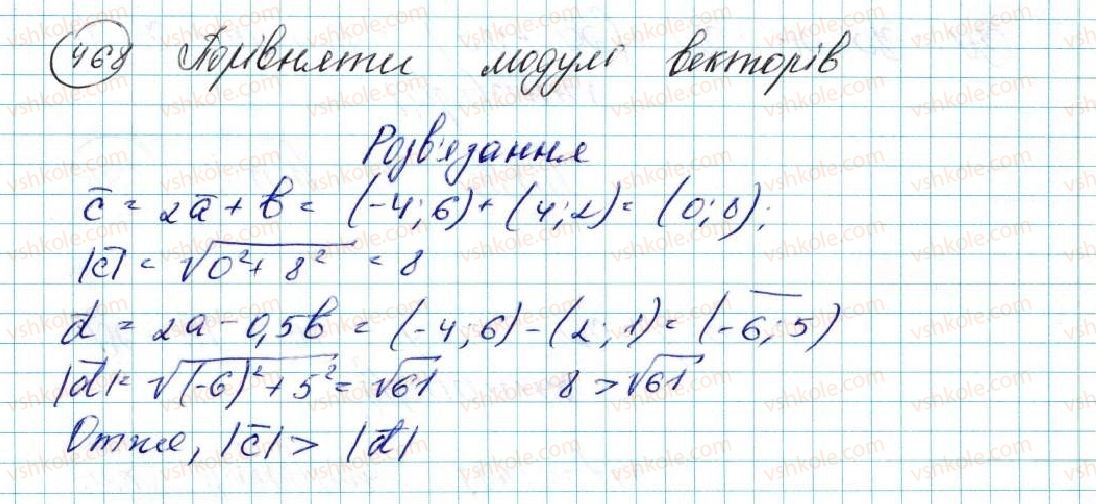 468 Порівняти модулі векторів
Розв'язання
c̄ = 2ā + b̄ = (-4; 6) + (4; 2) = (0; 8);
|c̄| = √(0² + 8²) = 8
d̄ = 2ā - 0,5b̄ = (-4; 6) - (2; 1) = (-6; 5)
|d̄| = √((-6)² + 5²) = √61 8 > √61
Отже, |c̄| > |d̄|